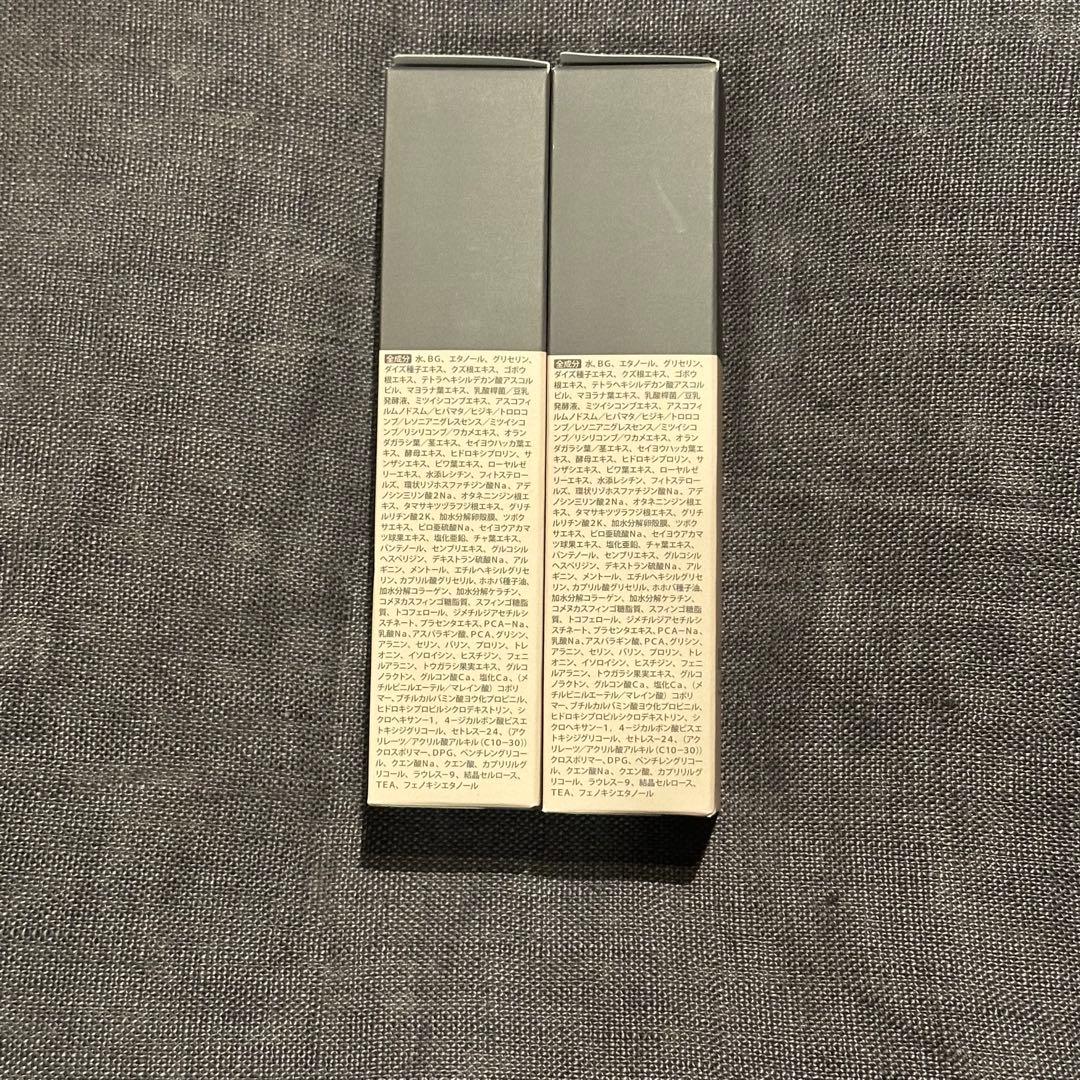 全成分 水、BG、エタノール、グリセリン、
ダイズ種子エキス、クズ根エキス、ゴボウ
根エキス、テトラヘキシルデカン酸アスコル
ビル、マヨラナ葉エキス、乳酸桿菌／豆乳
発酵液、ミツイシコンブエキス、アスコフィ
ルムノドスム／ヒバマタ／ヒジキ／トロロコ
ンブ／レソニアニグレスセンス／ミツイシコ
ンブ／リシリコンブ／ワカメエキス、オラン
ダガラシ葉／茎エキス、セイヨウハッカ葉エ
キス、酵母エキス、ヒドロキシプロリン、サ
ンザシエキス、ビワ葉エキス、ローヤルゼ
リーエキス、水添レシチン、フィトステロー
ルズ、環状リゾホスファチジン酸Na、アデ
ノシン三リン酸2Na、オタネニンジン根エ
キス、タマサキツヅラフジ根エキス、グリチ
ルリチン酸2K、加水分解卵殻膜、ツボク
サエキス、ピロ亜硫酸Na、セイヨウアカマ
ツ球果エキス、塩化亜鉛、チャ葉エキス、
パンテノール、センブリエキス、グルコシル
ヘスペリジン、デキストラン硫酸Na、アル
ギニン、メントール、エチルヘキシルグリセ
リン、カプリル酸グリセリル、ホホバ種子油、
加水分解コラーゲン、加水分解ケラチン、
コメヌカスフィンゴ糖脂質、スフィンゴ糖脂
質、トコフェロール、ジメチルジアセチルシ
スチネート、プラセンタエキス、PCA-Na、
乳酸Na、アスパラギン酸、PCA、グリシン、
アラニン、セリン、バリン、プロリン、トレ
オニン、イソロイシン、ヒスチジン、フェニ
ルアラニン、トウガラシ果実エキス、グルコ
ノラクトン、グルコン酸Ca、塩化Ca、（メ
チルビニルエーテル／マレイン酸）コポリ
マー、ブチルカルバミン酸ヨウ化プロピニル、
ヒドロキシプロピルシクロデキストリン、シ
クロヘキサン-1，4-ジカルボン酸ビスエ
トキシジグリコール、セトレス-24、（アク
リレーツ／アクリル酸アルキル（C10-30））
クロスポリマー、DPG、ペンチレングリコー
ル、クエン酸Na、クエン酸、カプリリルグ
リコール、ラウレス-9、結晶セルロース、
TEA、フェノキシエタノール
全成分 水、BG、エタノール、グリセリン、
ダイズ種子エキス、クズ根エキス、ゴボウ
根エキス、テトラヘキシルデカン酸アスコル
ビル、マヨラナ葉エキス、乳酸桿菌／豆乳
発酵液、ミツイシコンブエキス、アスコフィ
ルムノドスム／ヒバマタ／ヒジキ／トロロコ
ンブ／レソニアニグレスセンス／ミツイシコ
ンブ／リシリコンブ／ワカメエキス、オラン
ダガラシ葉／茎エキス、セイヨウハッカ葉エ
キス、酵母エキス、ヒドロキシプロリン、サ
ンザシエキス、ビワ葉エキス、ローヤルゼ
リーエキス、水添レシチン、フィトステロー
ルズ、環状リゾホスファチジン酸Na、アデ
ノシン三リン酸2Na、オタネニンジン根エ
キス、タマサキツヅラフジ根エキス、グリチ
ルリチン酸2K、加水分解卵殻膜、ツボク
サエキス、ピロ亜硫酸Na、セイヨウアカマ
ツ球果エキス、塩化亜鉛、チャ葉エキス、
パンテノール、センブリエキス、グルコシル
ヘスペリジン、デキストラン硫酸Na、アル
ギニン、メントール、エチルヘキシルグリセ
リン、カプリル酸グリセリル、ホホバ種子油、
加水分解コラーゲン、加水分解ケラチン、
コメヌカスフィンゴ糖脂質、スフィンゴ糖脂
質、トコフェロール、ジメチルジアセチルシ
スチネート、プラセンタエキス、PCA-Na、
乳酸Na、アスパラギン酸、PCA、グリシン、
アラニン、セリン、バリン、プロリン、トレ
オニン、イソロイシン、ヒスチジン、フェニ
ルアラニン、トウガラシ果実エキス、グルコ
ノラクトン、グルコン酸Ca、塩化Ca、（メ
チルビニルエーテル／マレイン酸）コポリ
マー、ブチルカルバミン酸ヨウ化プロピニル、
ヒドロキシプロピルシクロデキストリン、シ
クロヘキサン-1，4-ジカルボン酸ビスエ
トキシジグリコール、セトレス-24、（アク
リレーツ／アクリル酸アルキル（C10-30））
クロスポリマー、DPG、ペンチレングリコー
ル、クエン酸Na、クエン酸、カプリリルグ
リコール、ラウレス-9、結晶セルロース、
TEA、フェノキシエタノール